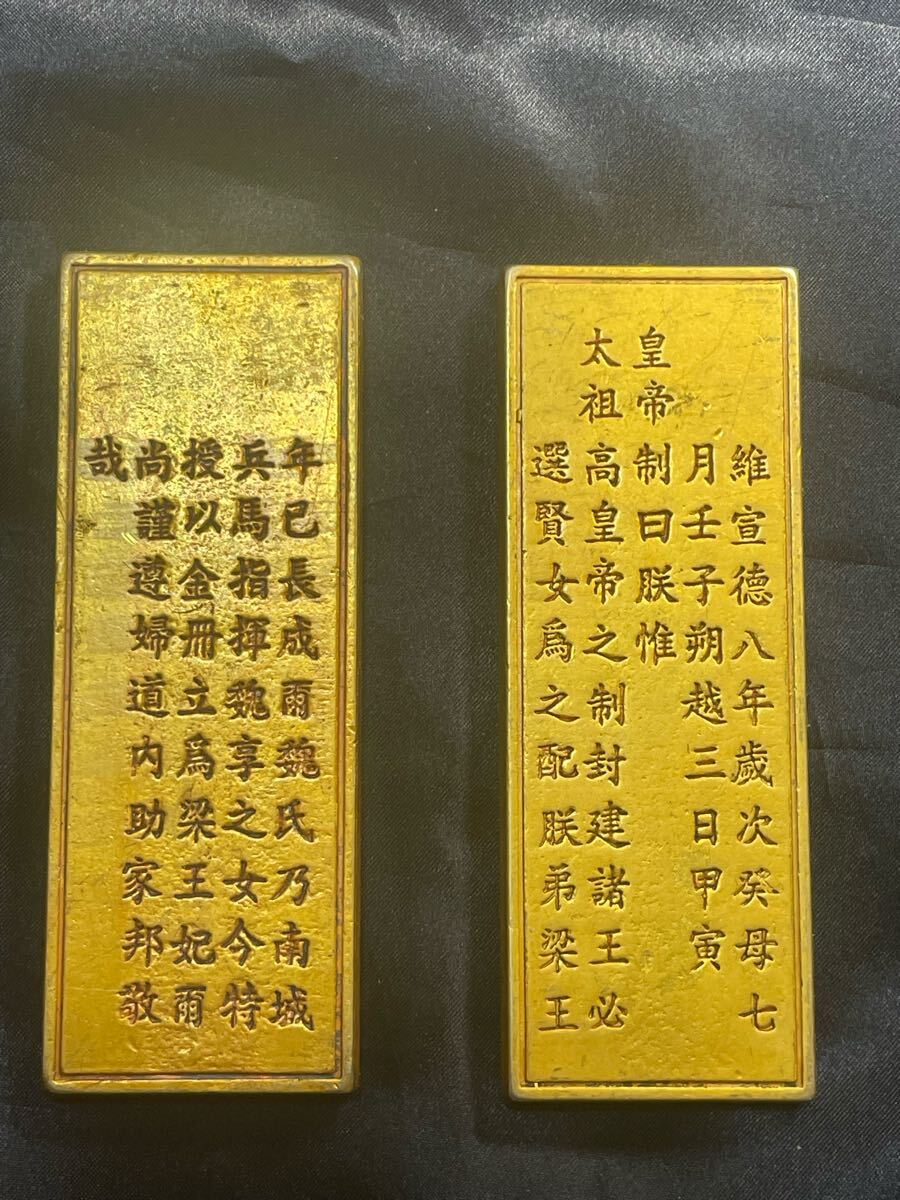 維宣德八年歲次癸母七
月壬子朔越三日甲寅
皇帝制曰朕惟
太祖高皇帝之制封建諸王必
選賢女爲之配朕弟梁王
年已長成爾魏氏乃南城
兵馬指揮魏享之女今特
授以金冊立爲梁王妃爾
尚謹遵婦道内助家邦敬
哉